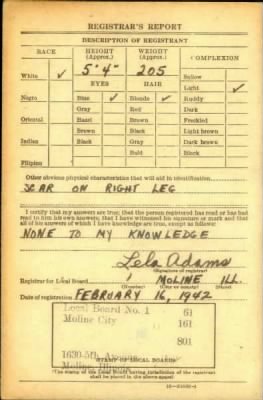 REGISTRAR'S REPORT
DESCRIPTION OF REGISTRANT
RACE HEIGHT (Approx.) WEIGHT (Approx.) COMPLEXION
White ✓ 5' 4" 205 Sallow
EYES HAIR Light ✓
Negro Blue ✓ Blonde ✓ Ruddy
Gray Red Dark
Oriental Hazel Brown Freckled
Brown Black Light brown
Indian Black Gray Dark brown
Bald Black
Filipino
Other obvious physical characteristics that will aid in identification
SCAR ON RIGHT LEG
I certify that my answers are true; that the person registered has read or has had
read to him his own answers; that I have witnessed his signature or mark and that
all of his answers of which I have knowledge are true, except as follows:
NONE TO MY KNOWLEDGE
Lela Adams
(Signature of registrar)
Registrar for Local Board 1 MOLINE ILL.
(Number) (City or county) (State)
Date of registration FEBRUARY 16, 1942
Local Board No. 1 61
Moline City 161
801
1630-5th
Moline, Illinois
(STAMP OF LOCAL BOARD)
(The stamp of the Local Board having jurisdiction of the registrant
shall be placed in the above space.)